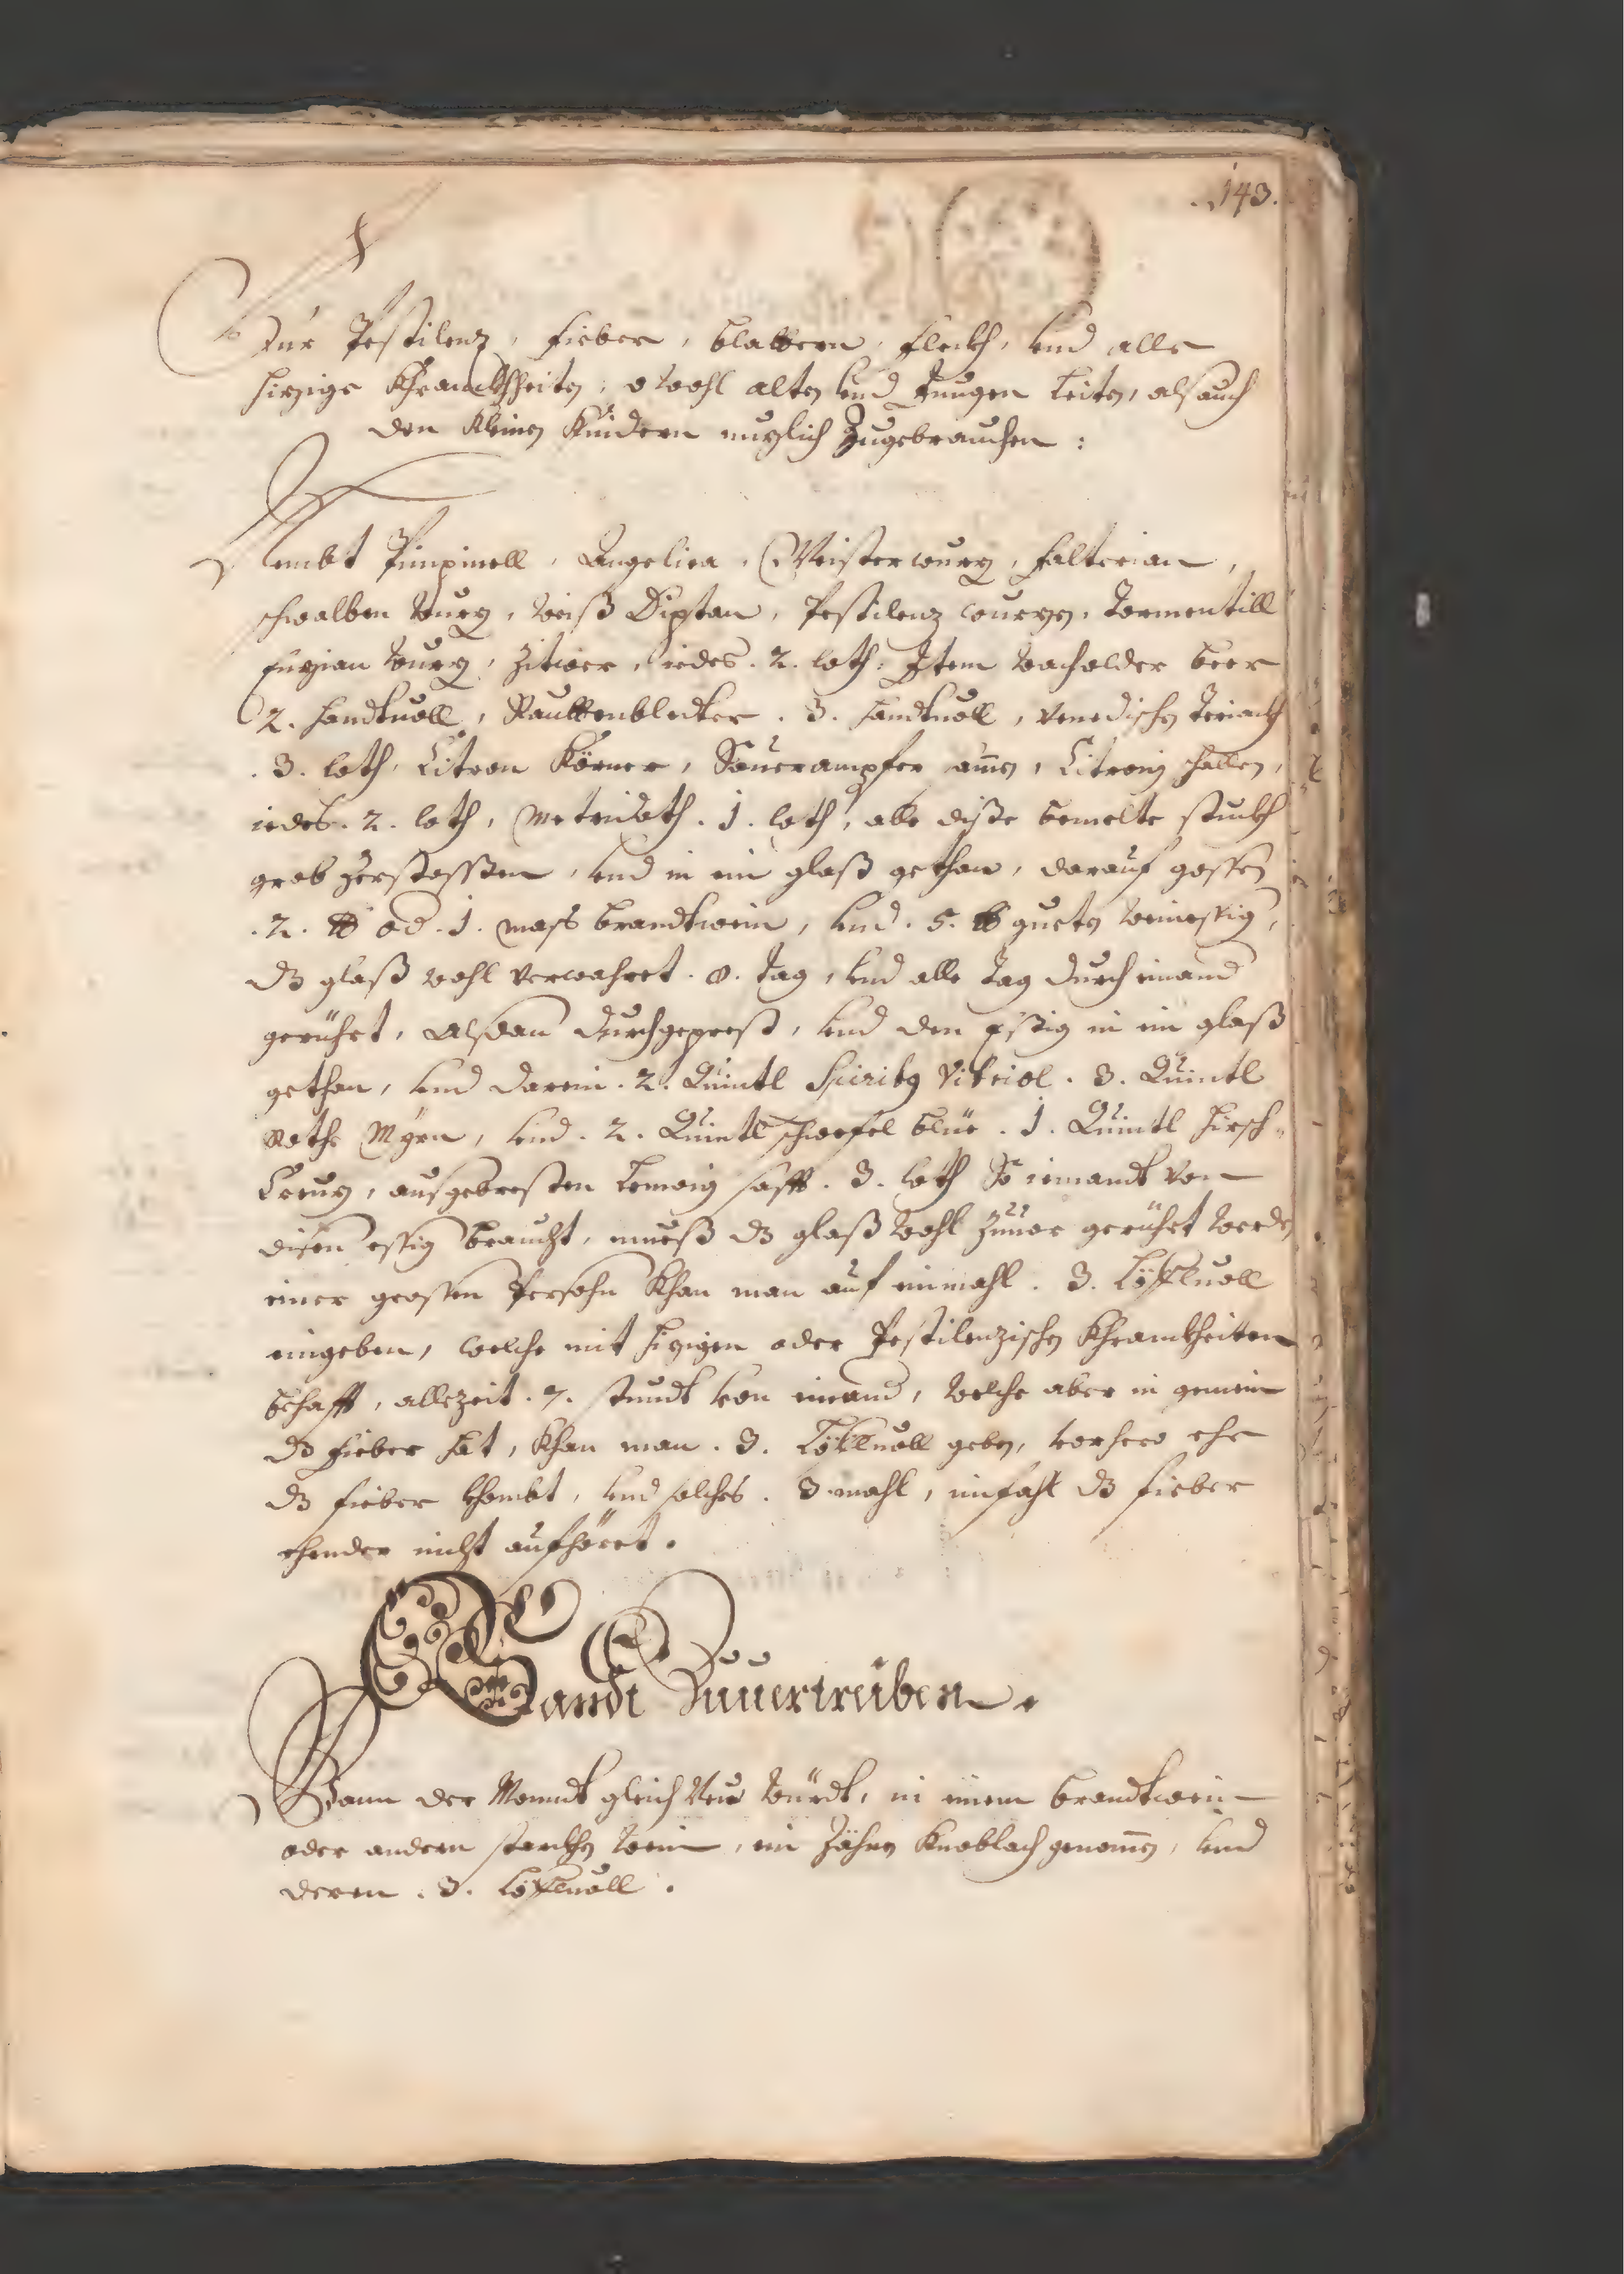 143.
Für Pestilenz, fieber, blattern, fleckh, vnd alle
hizige Khranckhheiten, sowohl alten vnd Jungen Leiten, als auch
den Kleinen Kindern nuzlich Zugebrauchen:
Nembt Pimpinell, Angelica, Meisterwurz, falterian,
schwalben wurz, weiß Diptan, Pestilenz wurzen, Tormentill
Enzian wurz, Zitwer, iedes. 2. loth, Item wacholder beer
2. handtuoll, Rauttenbletter. 3. handtuoll, Venedischen Teriackh
. 3. loth, Citron Körner, Sauerampfer , Citronen schallen,
iedes. 2. loth, Metridath. 1. loth, alle diße bemelte stuckh
grob zerstossßen, vnd in ein glaß gethan, darauf gossen
. 2. ℔ od. 1. mass brandtwein, vnd. 5. ℔ gueten weinessig,
dz glaß wohl verwahret. 8. tag, vnd alle tag durch einand
gerührt, alßdan durchgeprest, vnd den Essig in ein glaß
gethan, vnd darein. 2. Quintl Spiritus Vitriol. 3. Quintl
Rothe Myrn, vnd. 2. Quintl schwefel blüe. 1. Quintl hirsch-
Creuz, ausgebresten Lemoni safft. 3. loth So iemandt von
disen essig braucht, mueß dz glaß wohl zuuor gerührt werden
einer grossen Persohn Khan man auf einmahl. 3. Löffluoll
eingeben, welche mit hizigen oder Pestilenzischen Khranckheiten
behafft, allezeit. 7. stundt von einand, welche aber in gemein
dz fieber hat, Khan man. 3. Löffluoll geben, vorhero ehe
dz fieber khombt, vnd solches. 3. mahl, imfahl dz fieber
ehender nicht aufhöret.
Zuuertreiben.
Wann der Monndt gleich Neu würdt, in einem brandtwein
oder andern starckhen wein, ein Zähen Knoblach genomen, vnd
deren. 3. Löffluoll.